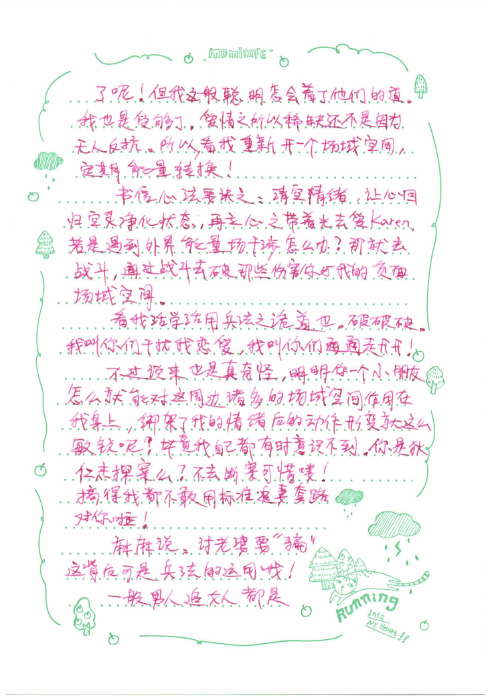 momicafe
了呢！但我这般聪明怎会着了他们的道。
我也是受够了，爱情之所以稀缺还不是因为
无人反抗。所以，看我重新开一个场域空间，
定期能量转换！
书信心法要诀之：清空情绪，让心回
归空灵净化状态，再走心之带着光去爱Karen。
若是遇到外界能量场干涉怎么办？那就去
战斗，通过战斗去破那些伤害你与我的负面
场域空间。
看我活学活用兵法之诡道也。破破破。
我叫你们干扰我恋爱，我叫你们再再走开！
不过说来也是真奇怪，明明你一个小朋友
怎么就能对这周边诸多的场域空间作用在
我身上，绑架了我的情绪后的动作形变就这么
敏锐呢？毕竟我自己都有时意识不到。你是狄
仁杰探案么？不去断案可惜喽！
搞得我都不敢用标准逗妻套路
对你啦！
麻麻说：讨老婆要“骗”
这背后可是兵法的运用哦！
一般男人追女人都是
Running
Into
My Heart!!